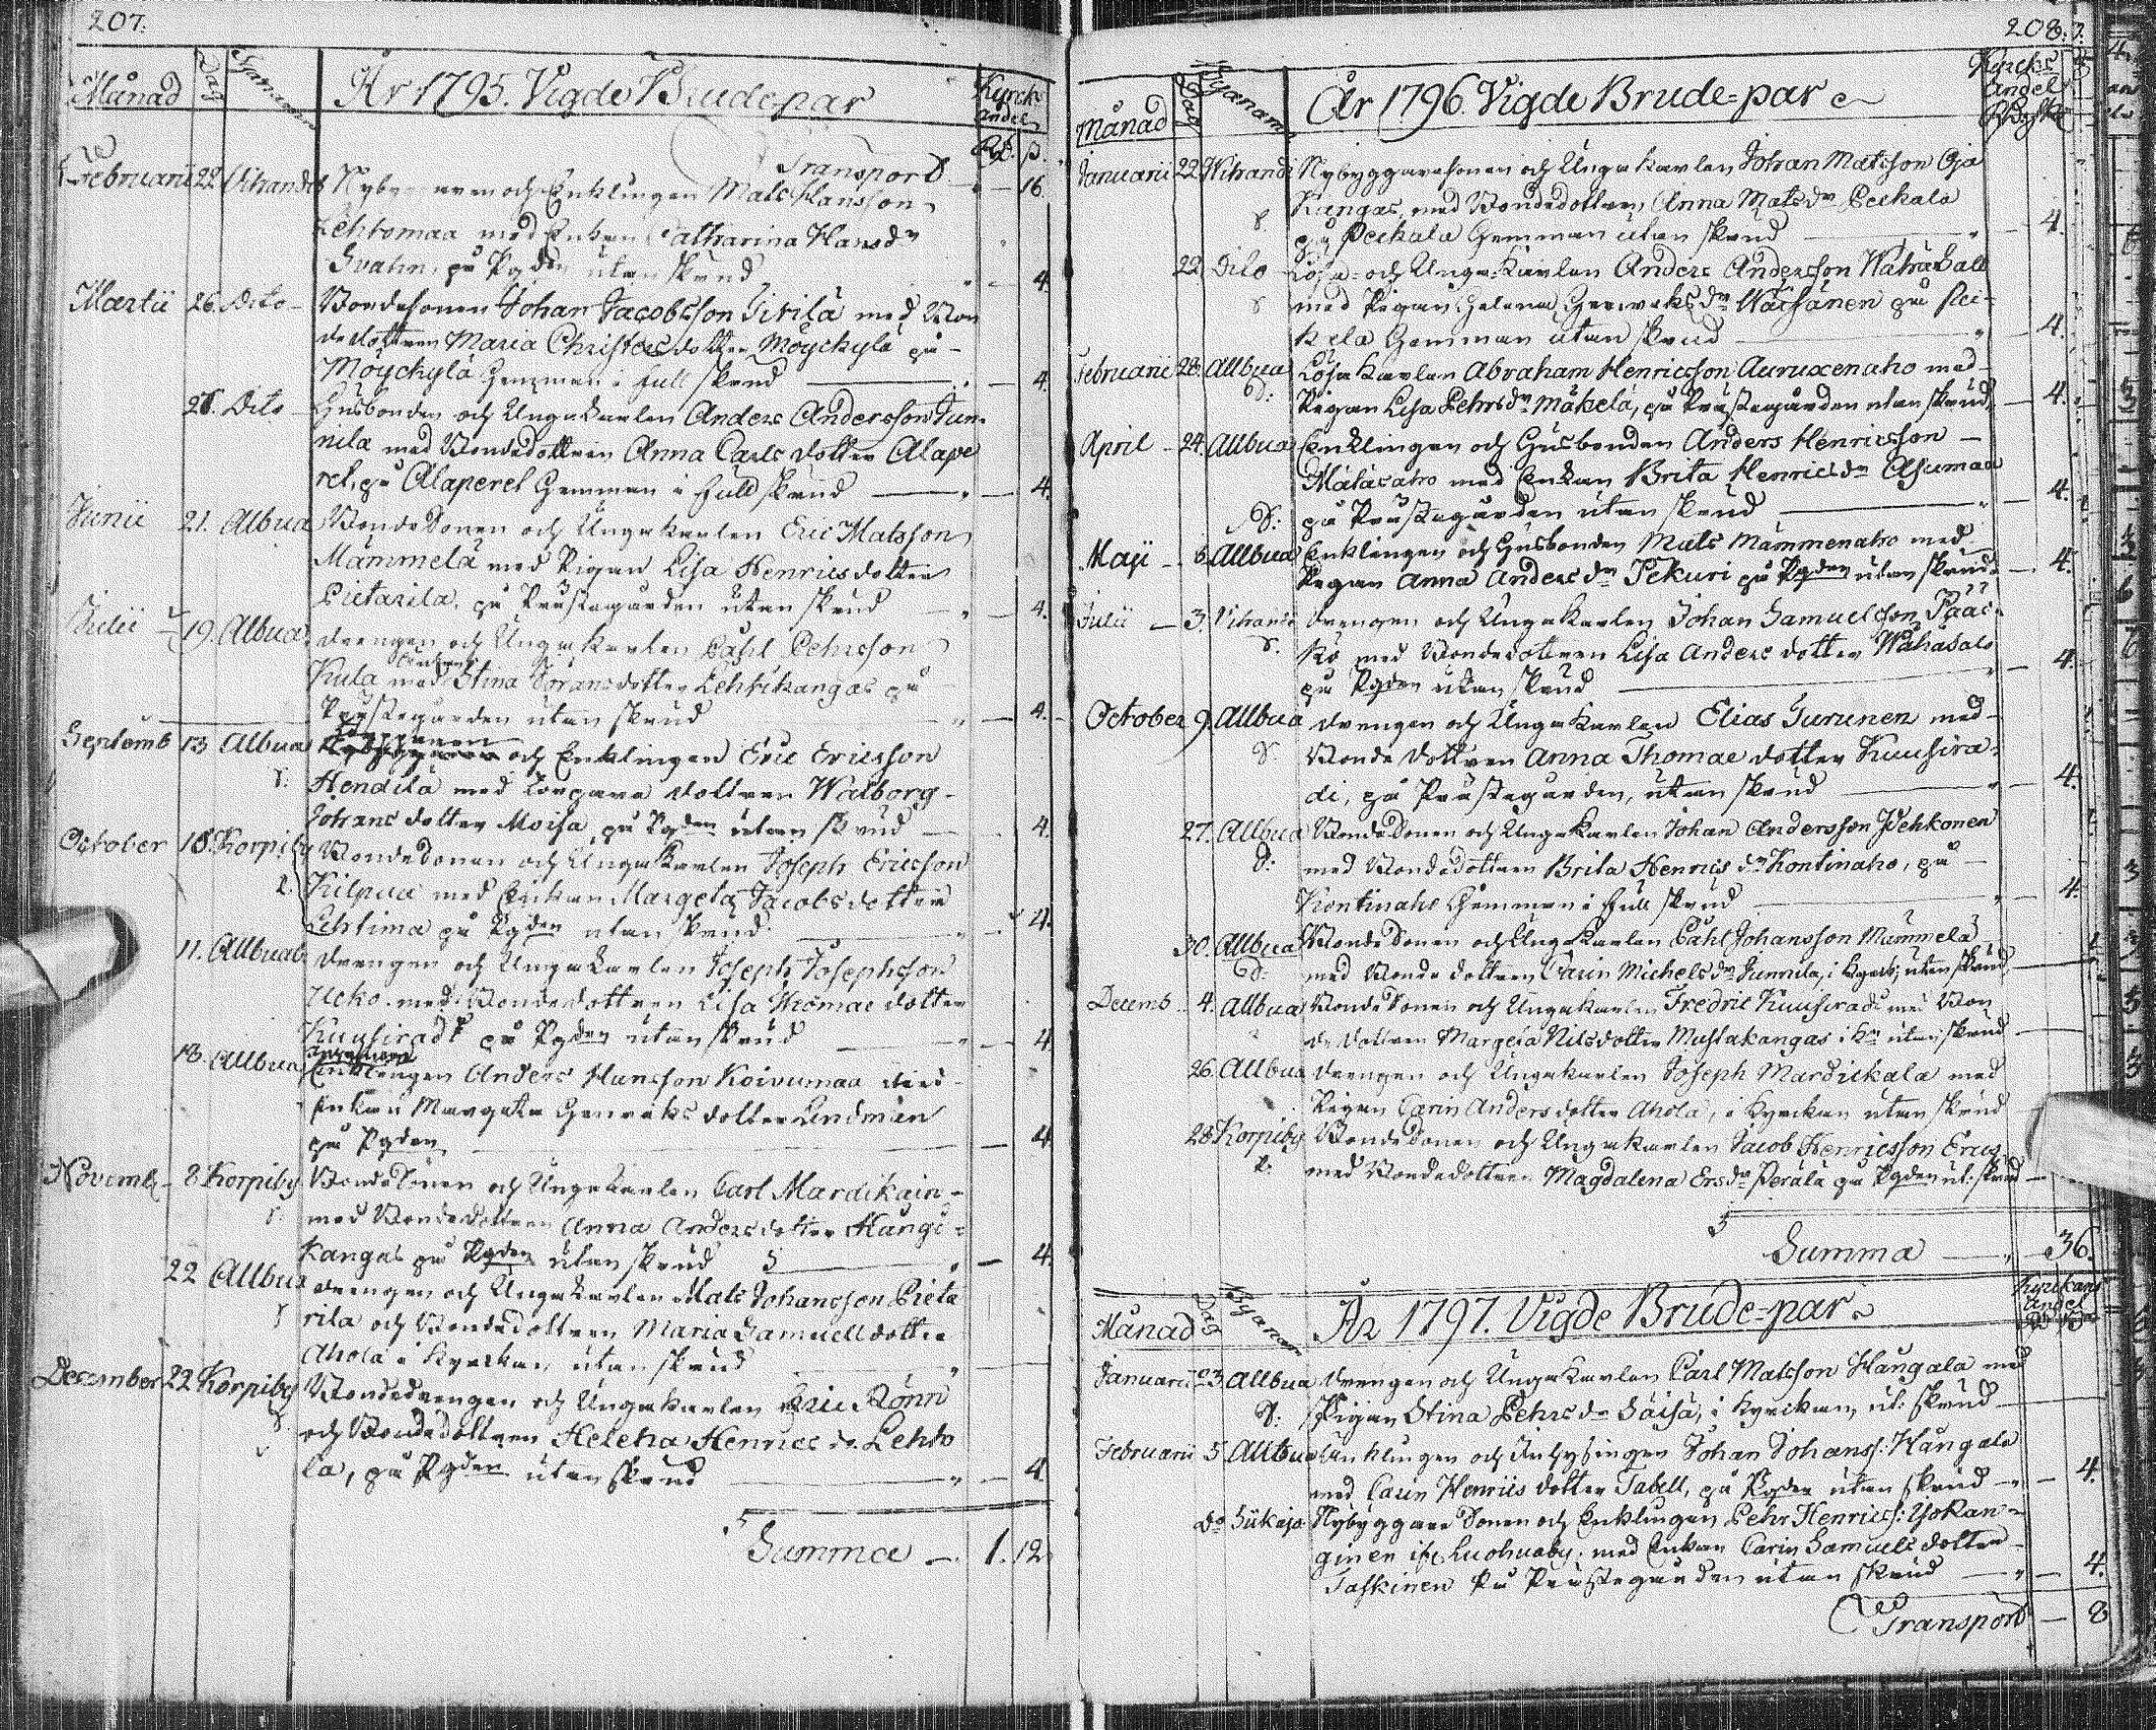 207.
Månad Dag Bynamn År 1795. Vigde Brude-par Kyrck andel
Rd. ß.
Transport — 16
Februarii 22 Vihandi Nybyggaren och Enklingen Mats Hansson
Lehtomaa med Enkan Catharina Hansdr
Svahn, på Pgden utan skrud 4
Martii 26. Dito Bondesonen Johan Jacobsson Iivilä med Bon
dedottren Maria Christersdotter Möyckylä på
Möyckylä Hemman i full skrud — 4.
28. Dito Husbonden och Ungakarlen Anders Andersson Jun
nila med Bondedottren Anna Carls dotter Alape
ret, på Alaperet Hemman i full skrud — 4.
Junii 21. Albua BondeSonen och Ungakarlen Eric Matsson
Mämmelä med Pigan Lisa Henricsdotter
Pietarila, på Prästegården utan skrud — 4.
Julii 19. Albua Drengen och Ungakarlen Påhl Pehrsson
Kula med Enkan Stina Göransdotter Lehtikangas på
Prästegården utan skrud 4.
Septemb 13 Albua och Enklingen Eric Ericsson
Hendilä med Torpare dottren Walborg
Johansdotter Moisa, på Pgden utan skrud — 4.
October 18. Korpiby BondeSonen och Ungakarlen Joseph Ericsson
Kilpua med Enkan Margeta Jacobsdotter
Lehtima på Pgden utan skrud — 4.
11. Allbua Drengen och Ungakarlen Joseph Josephsson
Ucko med Bondedottren Lisa Thomae dotter
Kuusiradi på Pgden utan skrud — 4
18. Allbua Enklingen Anders Hansson Koivumaa med
Enkan Margeta Henriks dotter Lindman
på Pgden — 4
Novemb. 8 Korpiby BondeSonen och Ungakarlen Carl Mardikain
med Bondedottren Anna Andersdotter Hangi-
kangas på Pgden utan skrud — 4.
22 Allbua Drengen och Ungakarlen Mats Johansson Pieta
rila och Bondedottren Maria Samuelldotter
Ahola i Kyrckan utan skrud
December 22 Korpiby Bondedrengen och Ungakarlen Eric Rönn
och Bondedottren Helena Henrics dr Lehto
la, på Pgden utan skrud — 4.
Summa — 1. 12
208.
Månad Dag Bynamn År 1796. Vigde Brude-par Kyrcks andel
Januarii 22. Vihandi Nybyggaresonen och Ungakarlen Johan Matsson Oja
Kangas, med Bondedottren Anna Matsdr Peckala
på Peckala Hemman utan skrud — 4.
22. Dito Lösa- och Ungakarlen Anders Andersson Wähäsalo
med Pigan Helena Henricksdr Wäisänen på Pec-
kela Hemman utan skrud — 4.
Februarii 28. Allbua Lösa Karlen Abraham Henricsson Auruxenaho med
Pigan Lisa Pehrsdr Mäkelä, på Prästegården utan skrud, — 4.
April 24. Allbua Enklingen och Husbonden Anders Henricsson
Mälasaho med Enkan Brita Henricsdr Asumaa
på Prästegården utan skrud — 4.
Maji 6. Allbua Enklingen och Husbonden Mats Mämmenaho med
Pigan Anna Andersdr Pekuri på Pgden utan skrud — 4.
Julii 3. Vihandi Drengen och Ungakarlen Johan Samuelsson Pääs-
kö med Bondedottren Lisa Andersdotter Wähäsalo
på Pgden utan skrud — 4.
October 9. Allbua Drengen och Ungakarlen Elias Jurunen med
Bonde dottren Anna Thomae dotter Kuusira-
di, på Prästegården, utan skrud — 4.
27. Allbua BondeSonen och Ungakarlen Johan Andersson Pehkonen
med Bondedottren Brita Henrics dr Kontinaho, på
Kontinaho Hemman i full skrud — 4.
30. Allbua BondeSonen och Ungakarlen Påhl Johansson Mämmelä
med Bonde dottren Carin Michelsdr Junnila, i Kyrck: utan skrud.
Decemb. 4. Allbua BondeSonen och Ungakarlen Fredric Kuusiradi med Bon
de dottren Margeta Nilsdotter Mustakangas i Kn utan skrud
26. Allbua Drengen och Ungakarlen Joseph Mardickala med
Pigan Carin Andersdotter Ahola, i Kyrckan utan skrud
28 Korpiby BondeSonen och Ungakarlen Jacob Henricsson Erics
med Bondedottren Magdalena Ersdr Perälä på Pgden ut: skrud
Summa — 36.
Månad Dag Bynamn År 1797. Vigde Brude-par Kyrckans Andel
Januarii 23 Allbua Drengen och Ungakarlen Carl Matsson Haungala med
Pigan Stina Pehrsdr Säisä, i Kyrckan, ut: skrud
Februarii 5 Allbua Enklingen och Inhysingen Johan Johanss: Hangala
med Carin Henrics dotter Tabell, på Pgden utan skrud — 4.
Do Siikajo NybyggareSonen och Enklingen Pehr Henricss: Yokan-
ginen ifr Luohuaby, med Enkan Carin Samuels dotter
Taskinen På Prästegården utan skrud — 4.
Transport — 8